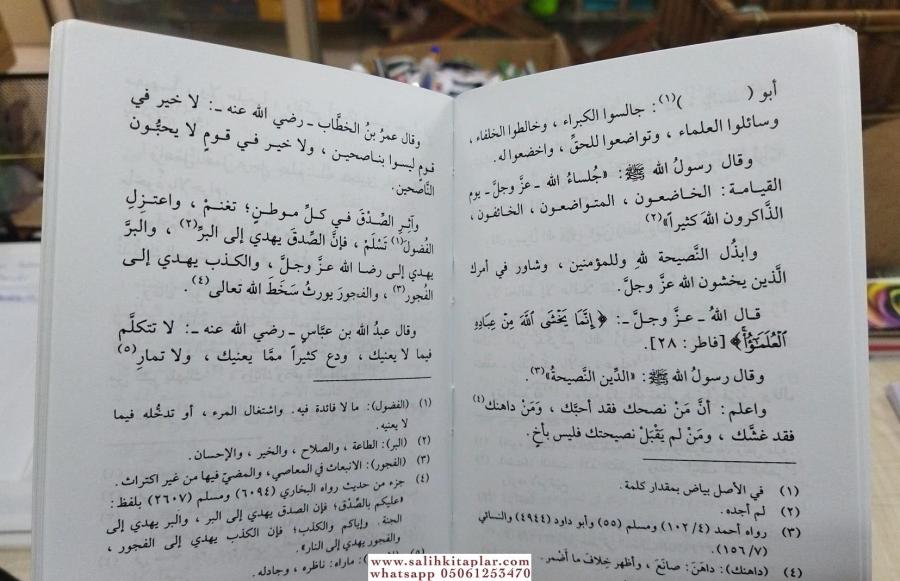 أبو (          )(١): جالسوا الكبراء ، وخالطوا الخلفاء ،
وسائلوا العلماء ، وتواضعوا للحقِّ ، واخضعوا له.
وقال رسولُ الله ﷺ: «جُلساءُ الله ـ عزَّ وجلَّ ـ يوم
القيامـة: الخـاضعـون ، المتـواضعـون ، الخـائفـون ،
الذَّاكرون اللهَ كثيراً»(٢)
وابذُل النَّصيحة للهِ وللمؤمنين ، وشاور في أمرك
الَّذين يخشون الله عزَّ وجلَّ.
قـال اللهُ ـ عزَّ وجلَّ ـ: ﴿ إِنَّمَا يَخْشَى ٱللَّهَ مِنْ عِبَادِهِ
ٱلْعُلَمَٰٓؤُا۟ ﴾ [فاطر: ٢٨].
وقال رسولُ الله ﷺ: «الدِّين النَّصيحةُ»(٣).
واعلم: أنَّ مَنْ نصحك فقد أحبَّك ، ومَنْ داهنك(٤)
فقد غشَّك ، ومَنْ لم يَقْبَلْ نصيحتك فليس بأخٍ.
(١) في الأصل بياض بمقدار كلمة.
(٢) لم أجده.
(٣) رواه أحمد (٤/١٠٢) ومسلم (٥٥) وأبو داود (٤٩٤٤) والنسائي
(٧/١٥٦).
(٤) (داهنك): داهَنَ: صانَعَ ، وأظهر خِلافَ ما أضْمر.
وقال عمرُ بنُ الخطَّاب ـ رضي الله عنه ـ: لا خير في
قومٍ ليسوا بناصحين ، ولا خيـر فـي قـومٍ لا يحبُّـون
النَّاصحين.
وآثـرِ الصِّـدْقَ فـي كـلِّ مـوطـنٍ؛ تغنـمْ ، واعتـزِلِ
الفُضولَ(١) تَسْلَمْ ، فإنَّ الصِّدقَ يهدي إلى البرِّ(٢) ، والبرَّ
يهدي إلى رضا الله عزَّ وجلَّ ، والكذب يهدي إلـى
الفُجور(٣) ، والفجورَ يورثُ سَخَطَ الله تعالى(٤).
وقال عبدُ الله بن عبَّاسٍ ـ رضي الله عنه ـ: لا تتكلَّم
فيما لا يعنيك ، ودع كثيراً ممَّا يعنيك ، ولا تمارِ(٥)
(١) (الفضول): ما لا فائدة فيه. واشتغال المرء ، أو تدخُّله فيما
لا يعنيه.
(٢) (البر): الطاعة ، والصلاح ، والخير ، والإحسان.
(٣) (الفجور): الانبعاث في المعاصي ، والمضيّ فيها من غير اكتراث.
(٤) جزء من حديث رواه البخاري (٦٠٩٤) ومسلم (٢٦٠٧) بلفظ:
«عليكم بالصِّدْق؛ فإن الصدق يهدي إلى البر ، والبر يهدي إلى
الجنة. وإياكم والكذب؛ فإن الكذب يهدي إلى الفجور ،
والفجور يهدي إلى النار».
(٥) ماراه: ناظره ، وجادله.
www.salihkitaplar.com
whatsapp 05061253470